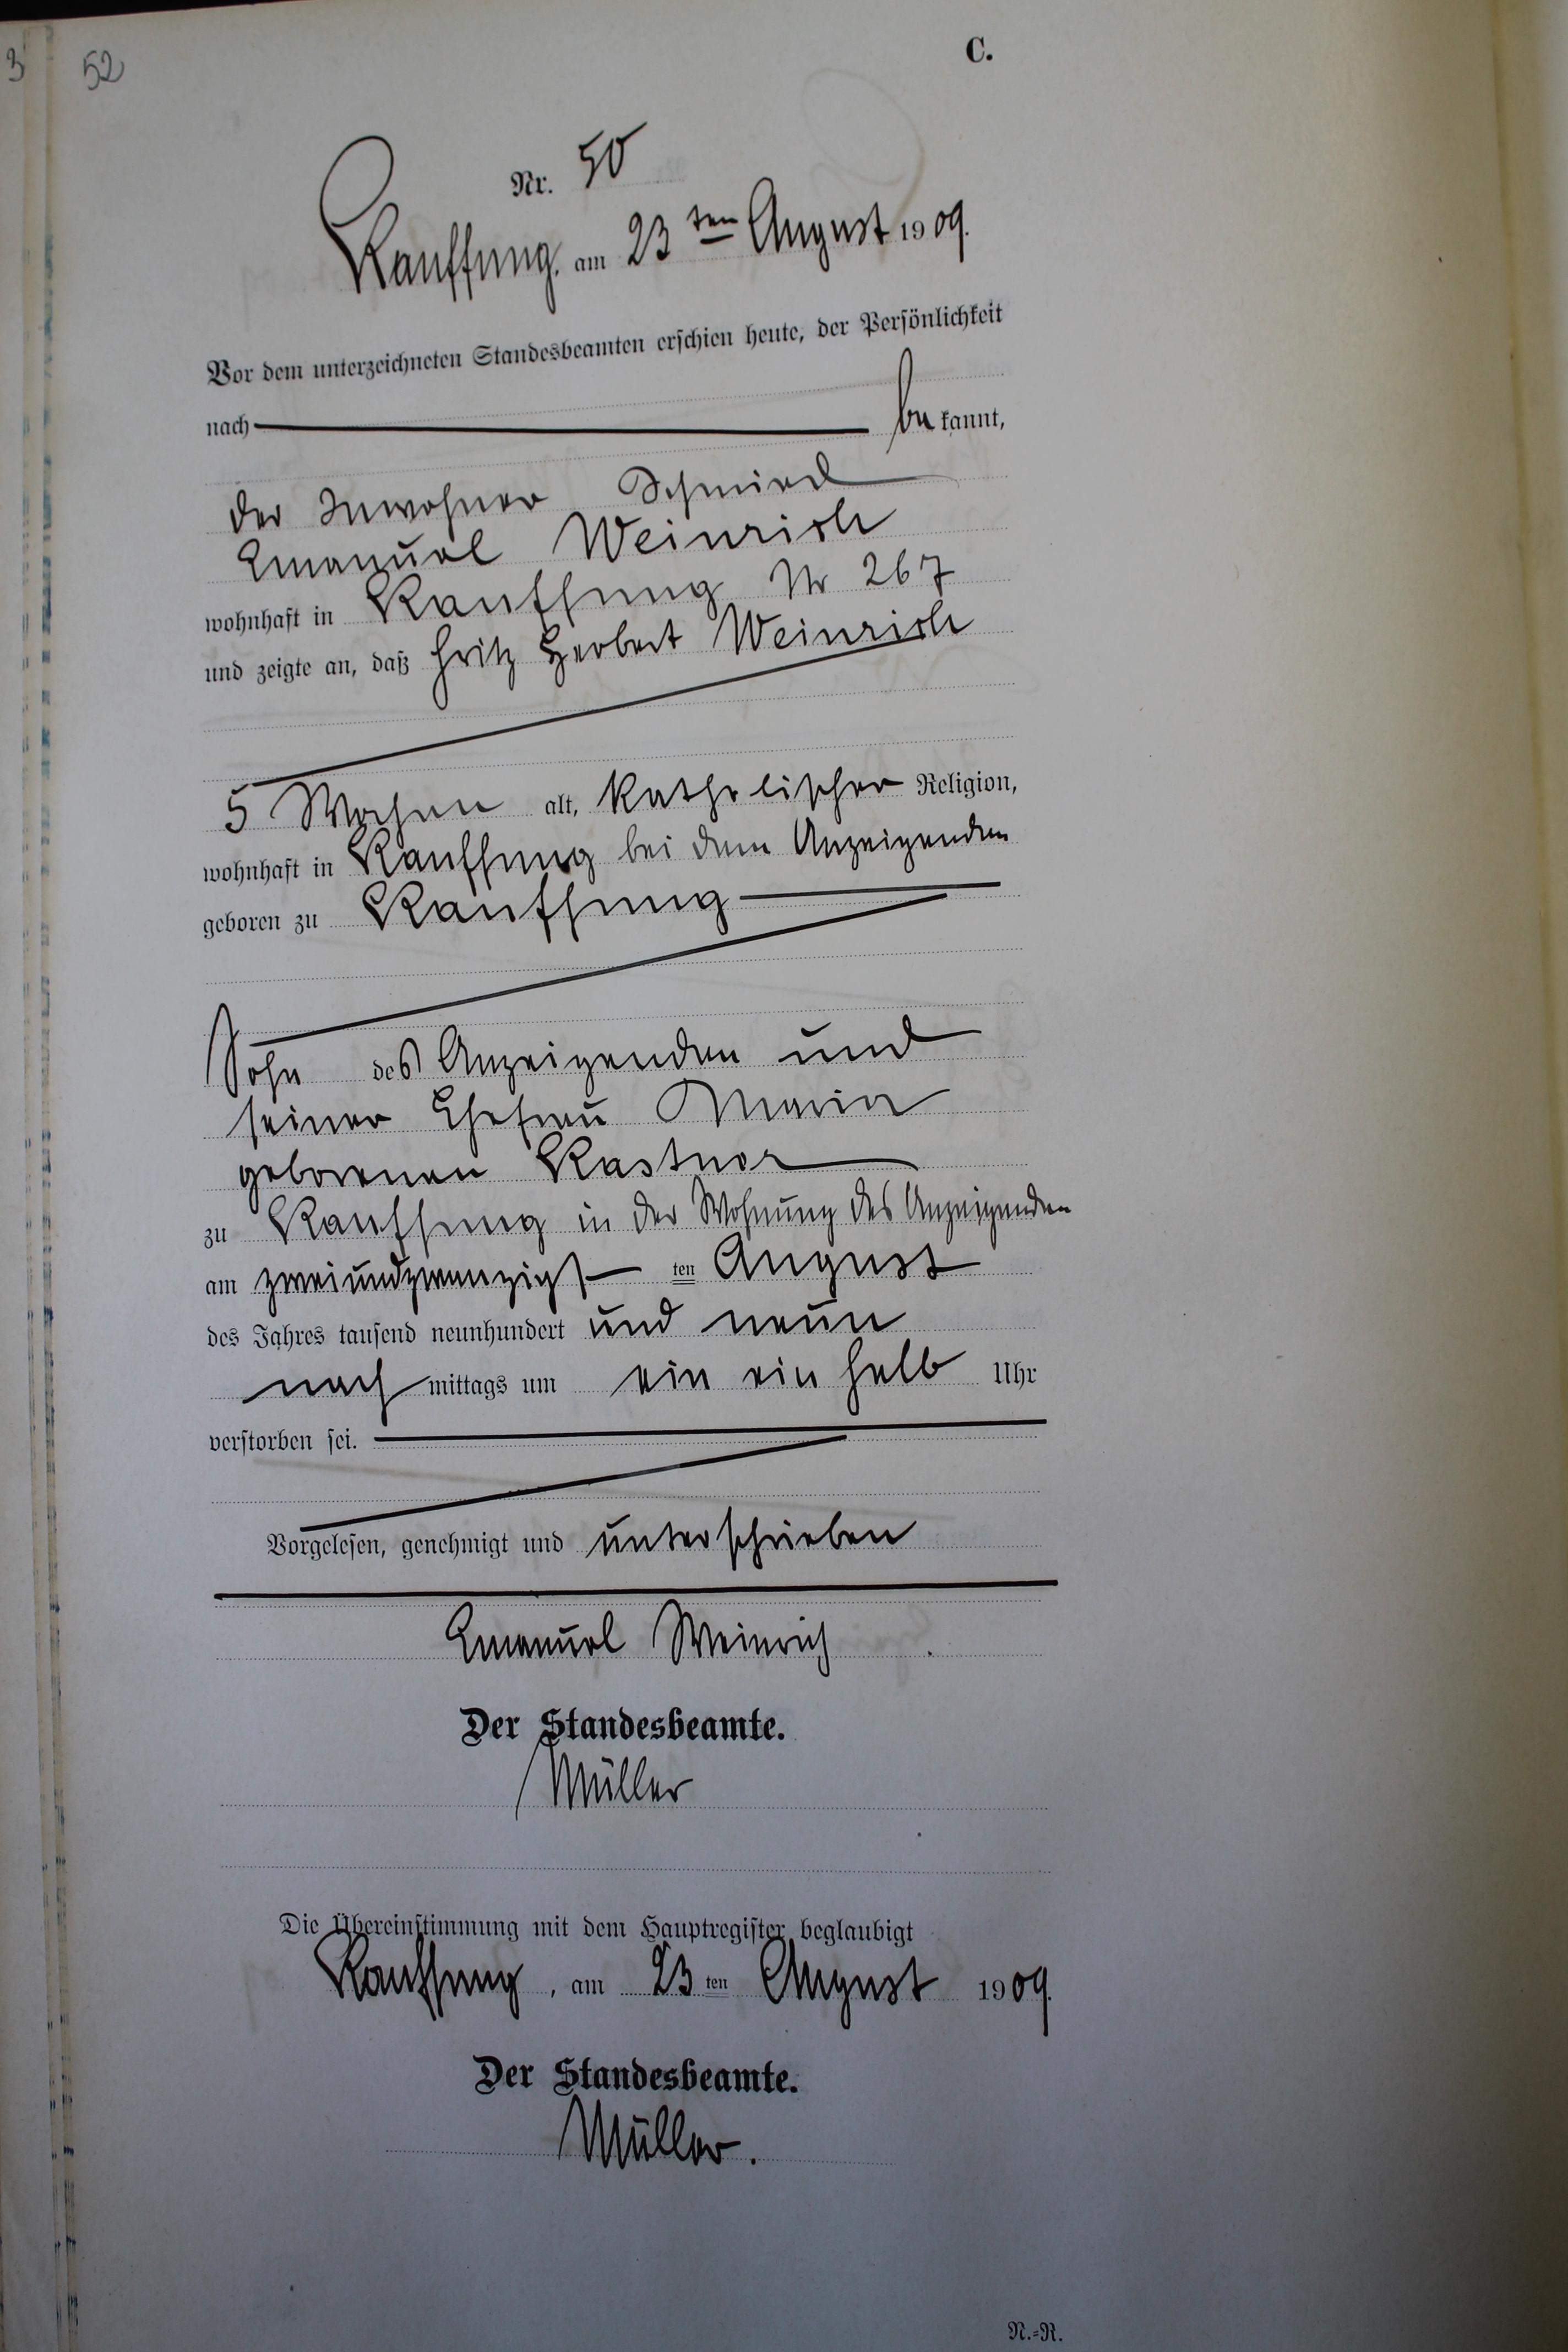 3 52
C.
Nr. 50
Kauffung, am 23ten August 1909.
Vor dem unterzeichneten Standesbeamten erschien heute, der Persönlichkeit
nach be kannt,
der Inwohner Schmied
Emanuel Weinrich
wohnhaft in Kauffung Nr 267
und zeigte an, daß Fritz Herbert Weinrich
5 Wochen alt, katholischer Religion,
wohnhaft in Kauffung bei dem Anzeigenden
geboren zu Kauffung
Sohn des Anzeigenden und
seiner Ehefrau Maria
geborenen Kastner
zu Kauffung in der Wohnung des Anzeigenden
am zweiundzwanzigsten August
des Jahres tausend neunhundert und neun
nach mittags um ein ein halb Uhr
verstorben sei.
Vorgelesen, genehmigt und unterschrieben
Emanuel Weinrich
Der Standesbeamte.
Müller
Die Übereinstimmung mit dem Hauptregister beglaubigt
Kauffung, am 23ten August 1909.
Der Standesbeamte.
Müller.
N.=R.